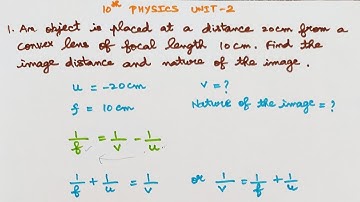 10th PHYSICS UNIT-2
1. An object is placed at a distance 20cm from a
convex lens of focal length 10cm. Find the
image distance and nature of the image.
u = -20cm v = ?
f = 10cm Nature of the image = ?
1/f = 1/v - 1/u
1/f + 1/u = 1/v or 1/v = 1/f + 1/u